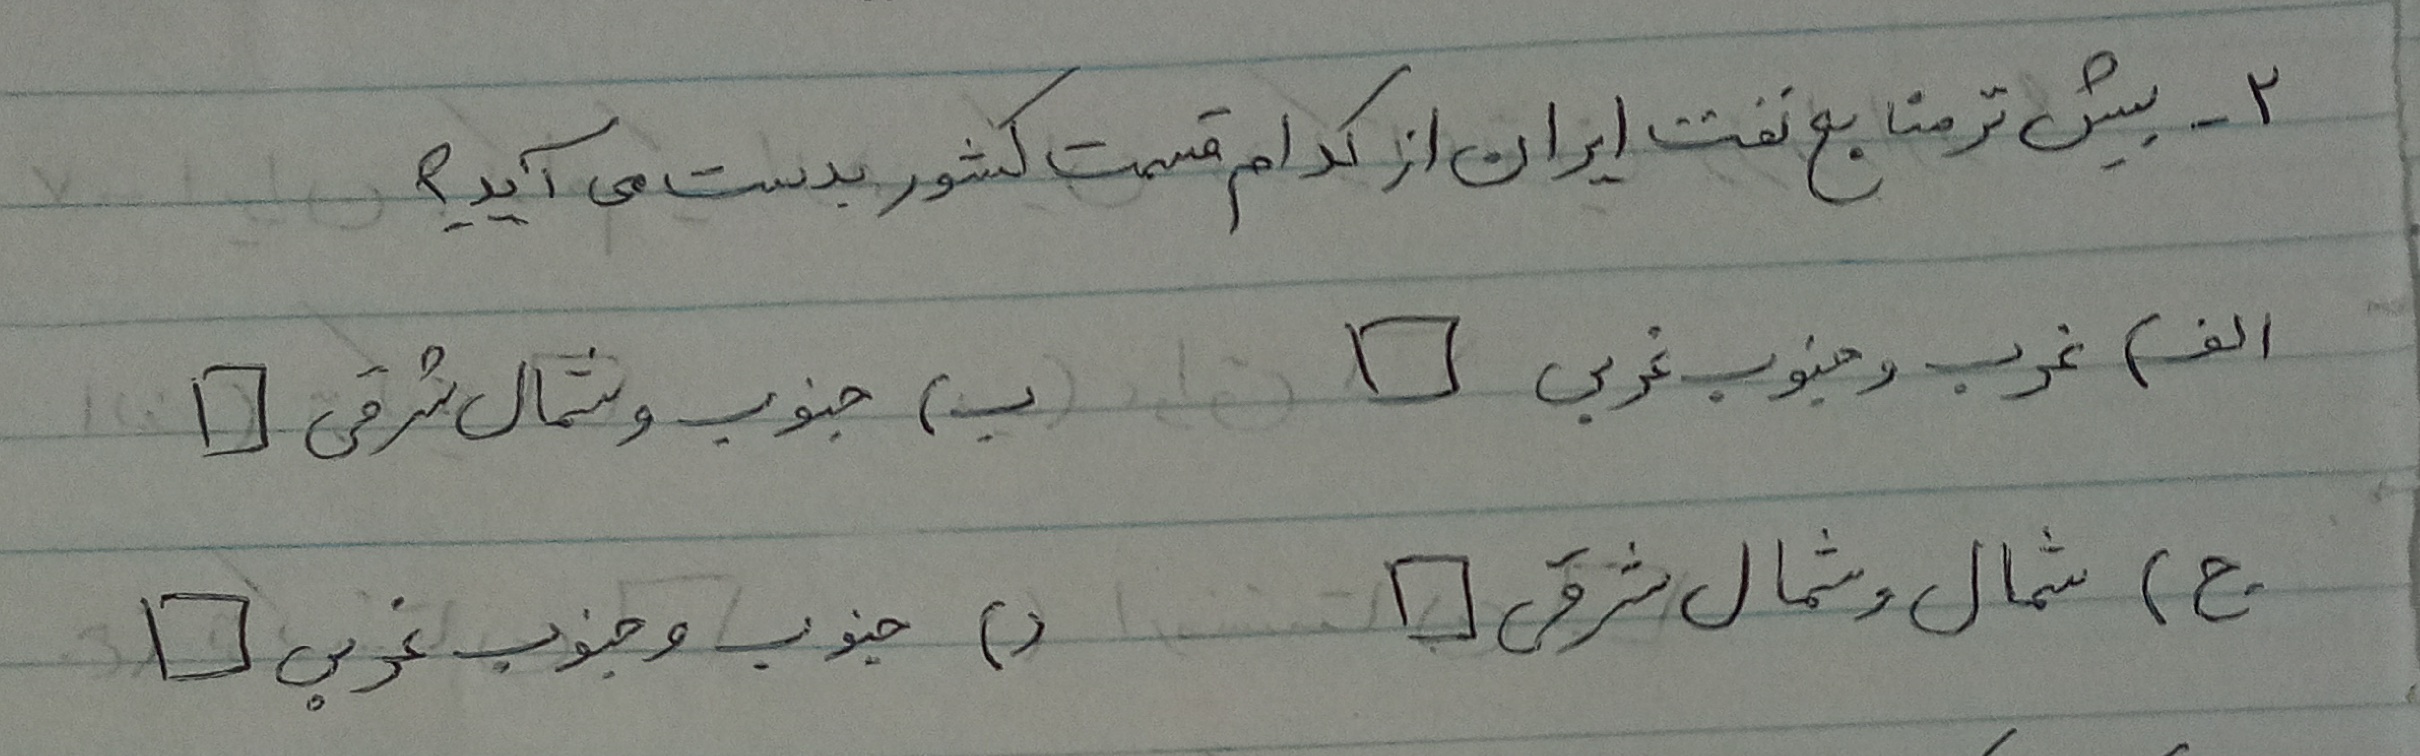 ۲- بیش تر منابع نفت ایران از کدام قسمت کشور بدست می آید؟
الف) غرب و جنوب غربی ب) جنوب و شمال شرقی
ج) شمال و شمال شرقی د) جنوب و جنوب غربی